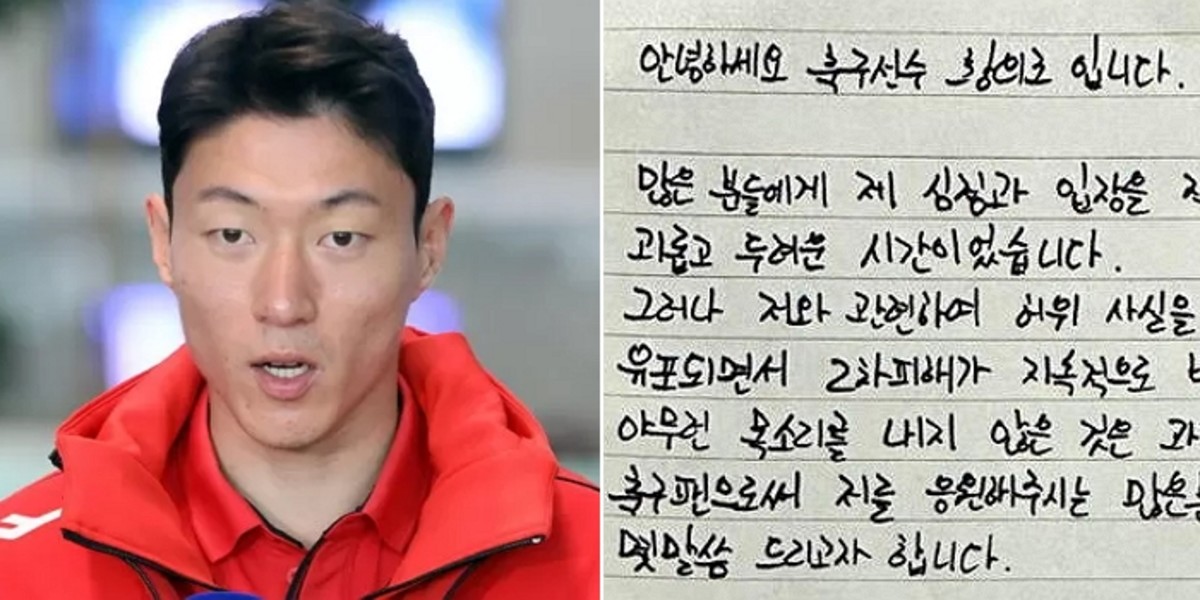 안녕하세요 축구선수 황의조 입니다.
많은 분들에게 제 심정과 입장을
괴롭고 두려운 시간이었습니다.
그러나 저와 관련하여 허위 사실을
유포되면서 2차피해가 지속적으로
아무런 목소리를 내지 않은 것은
축구팬으로써 저를 응원해주시는 많은
몇말씀 드리고자 합니다.